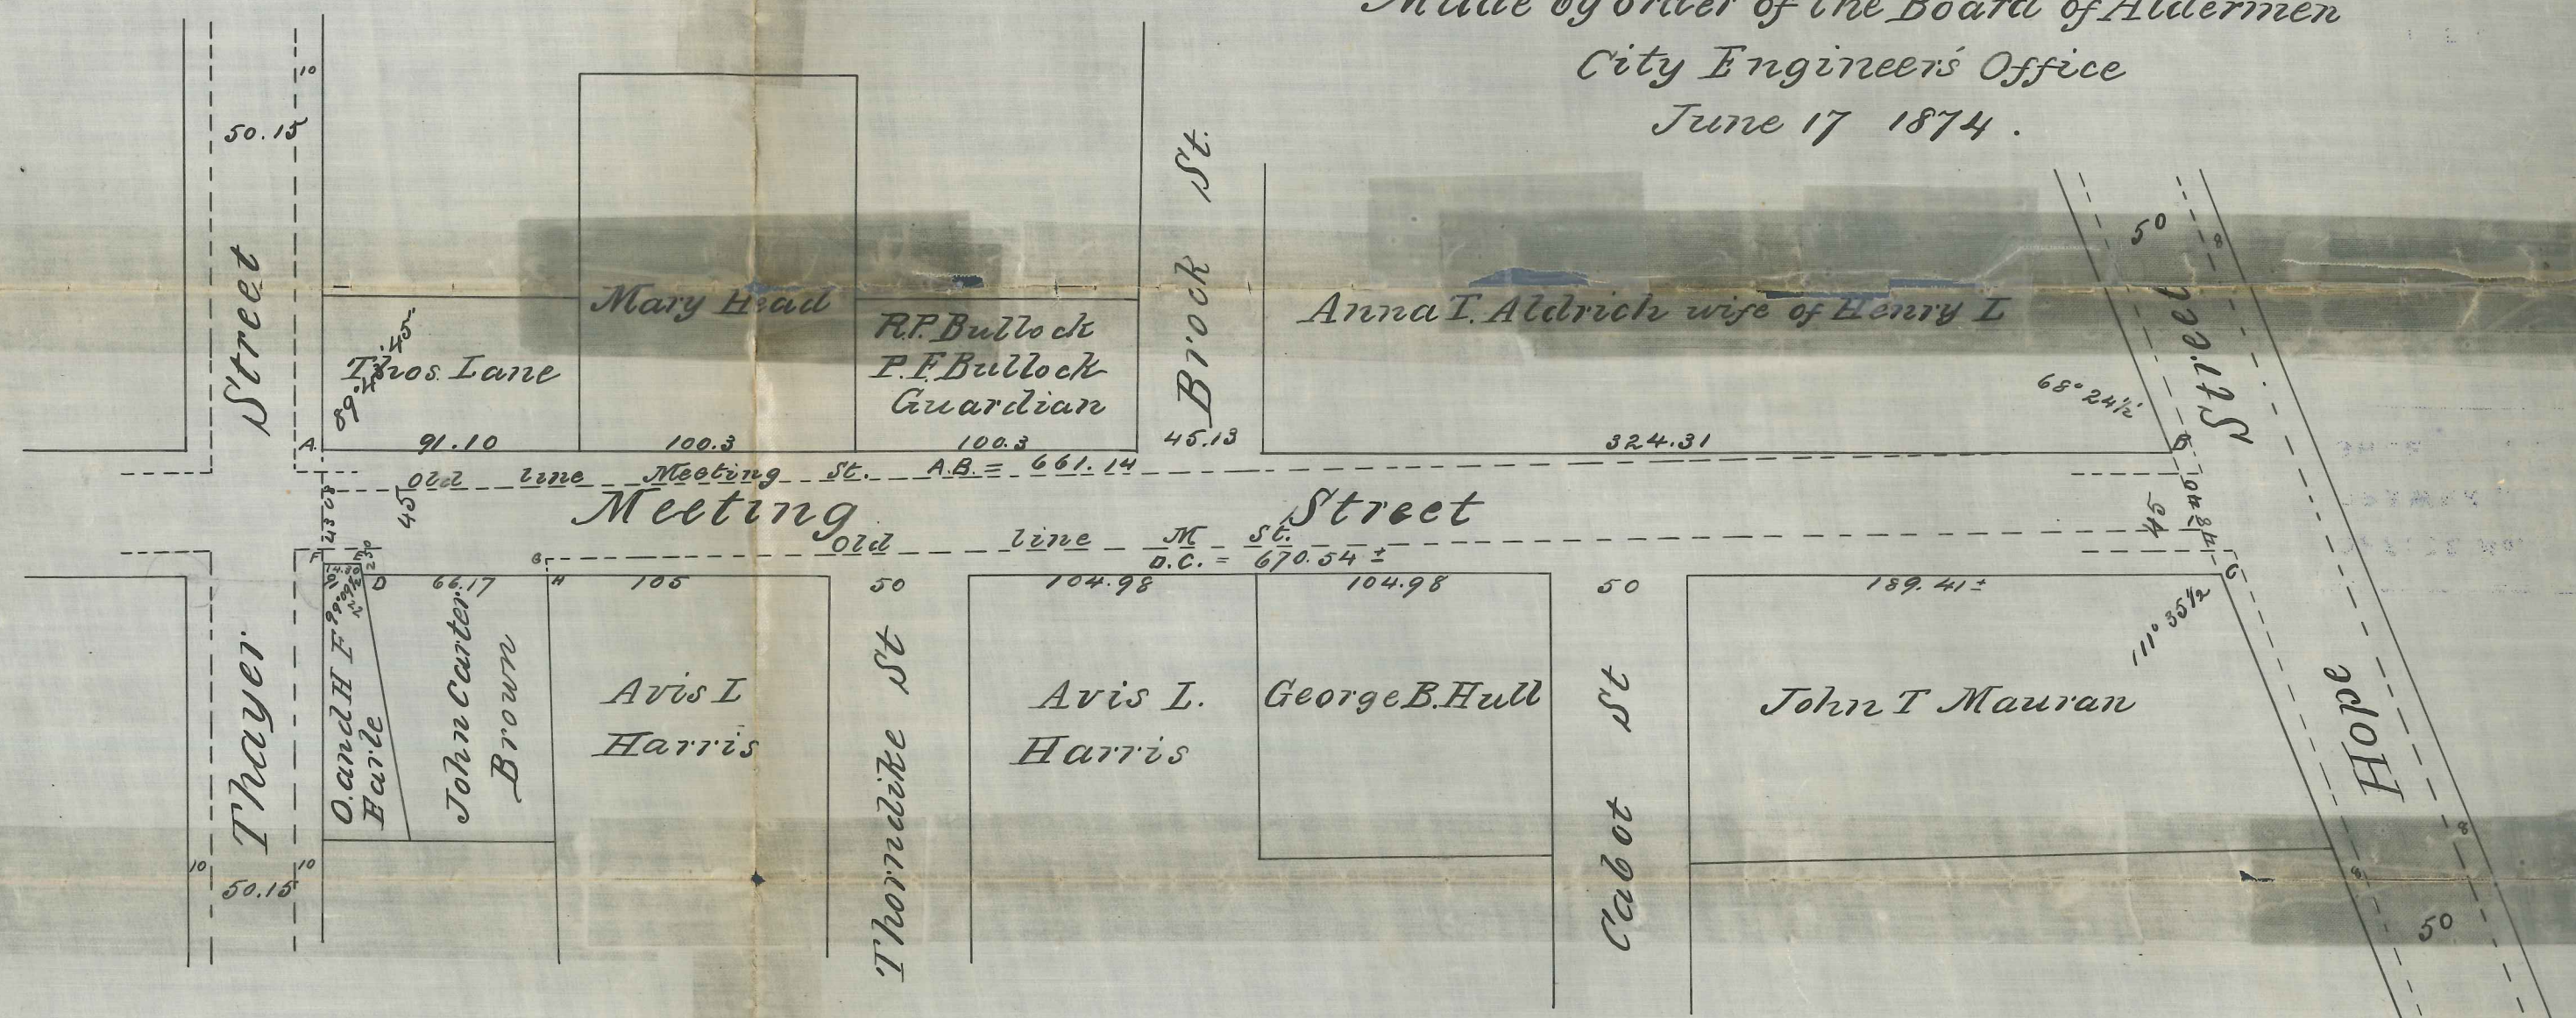 Made by order of the Board of Aldermen
City Engineer's Office
June 17 1874.
10
50.15
Street
Thos. Lane
Mary Head
R.P. Bullock
P.F. Bullock
Guardian
Brock St.
Anna T. Aldrich wife of Henry L
50
8
Street
68° 24½'
A.
91.10
100.3
100.3
45.13
324.31
B
Old line Meeting St. A.B. = 661.14
45
Meeting Street
45
48.40
Old line M St.
D.C. = 670.54 ±
F
E
G
D
66.17
H
105
50
104.98
104.98
50
189.41 ±
C
111° 35½
Thayer
O. and H F
Earle
John Carter
Brown
Avis L
Harris
Thorndike St
Avis L.
Harris
George B. Hull
Cabot St
John T Mauran
Hope
10
10
50.15
8
8
50